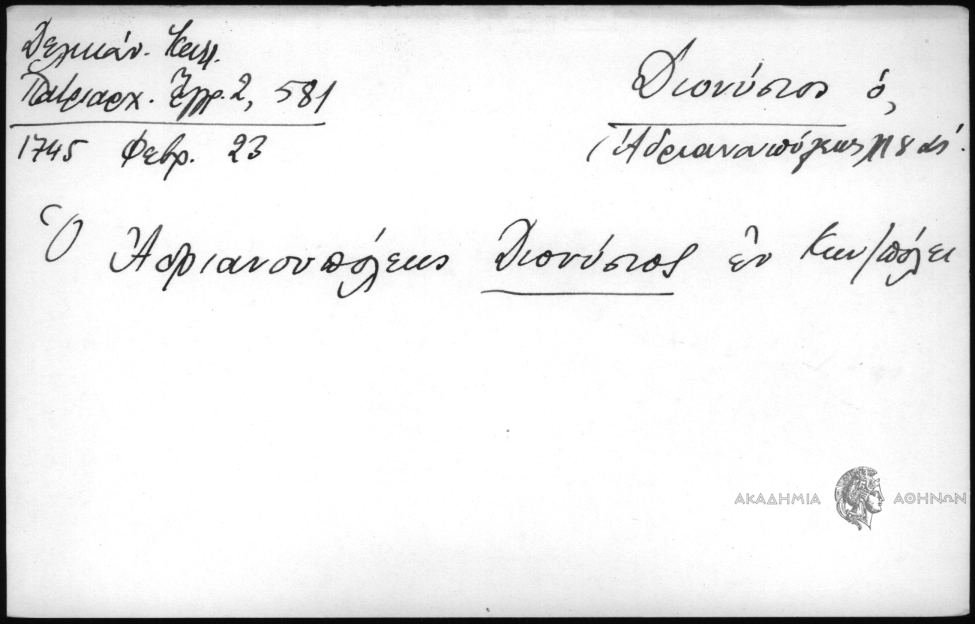 Δελικάν. Καλ.
Πατριαρχ. Ἔγγρ. 2, 581
1745 Φεβρ. 23
Διονύσιος ὁ,
Ἁδριανουπόλεως
Ὁ Ἁδριανουπόλεως Διονύσιος ἐν Κων/πόλει
ΑΚΑΔΗΜΙΑ ΑΘΗΝΩΝ